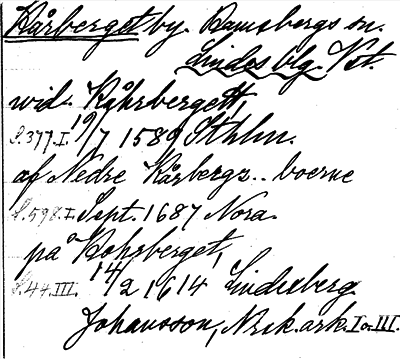 Kårberget by. Ramsbergs sn.
Lindes blg. Vst.
wid Kåhrbergett,
S.377.I. 19/7 1589 Sthlm.
af Nedre Kårbergz.. boerne
S.598.I. Sept. 1687 Nora.
på Kohrberget,
S.44.III. 14/2 1614 Lindesberg.
Johansson, Nrik. ark. I o. III.